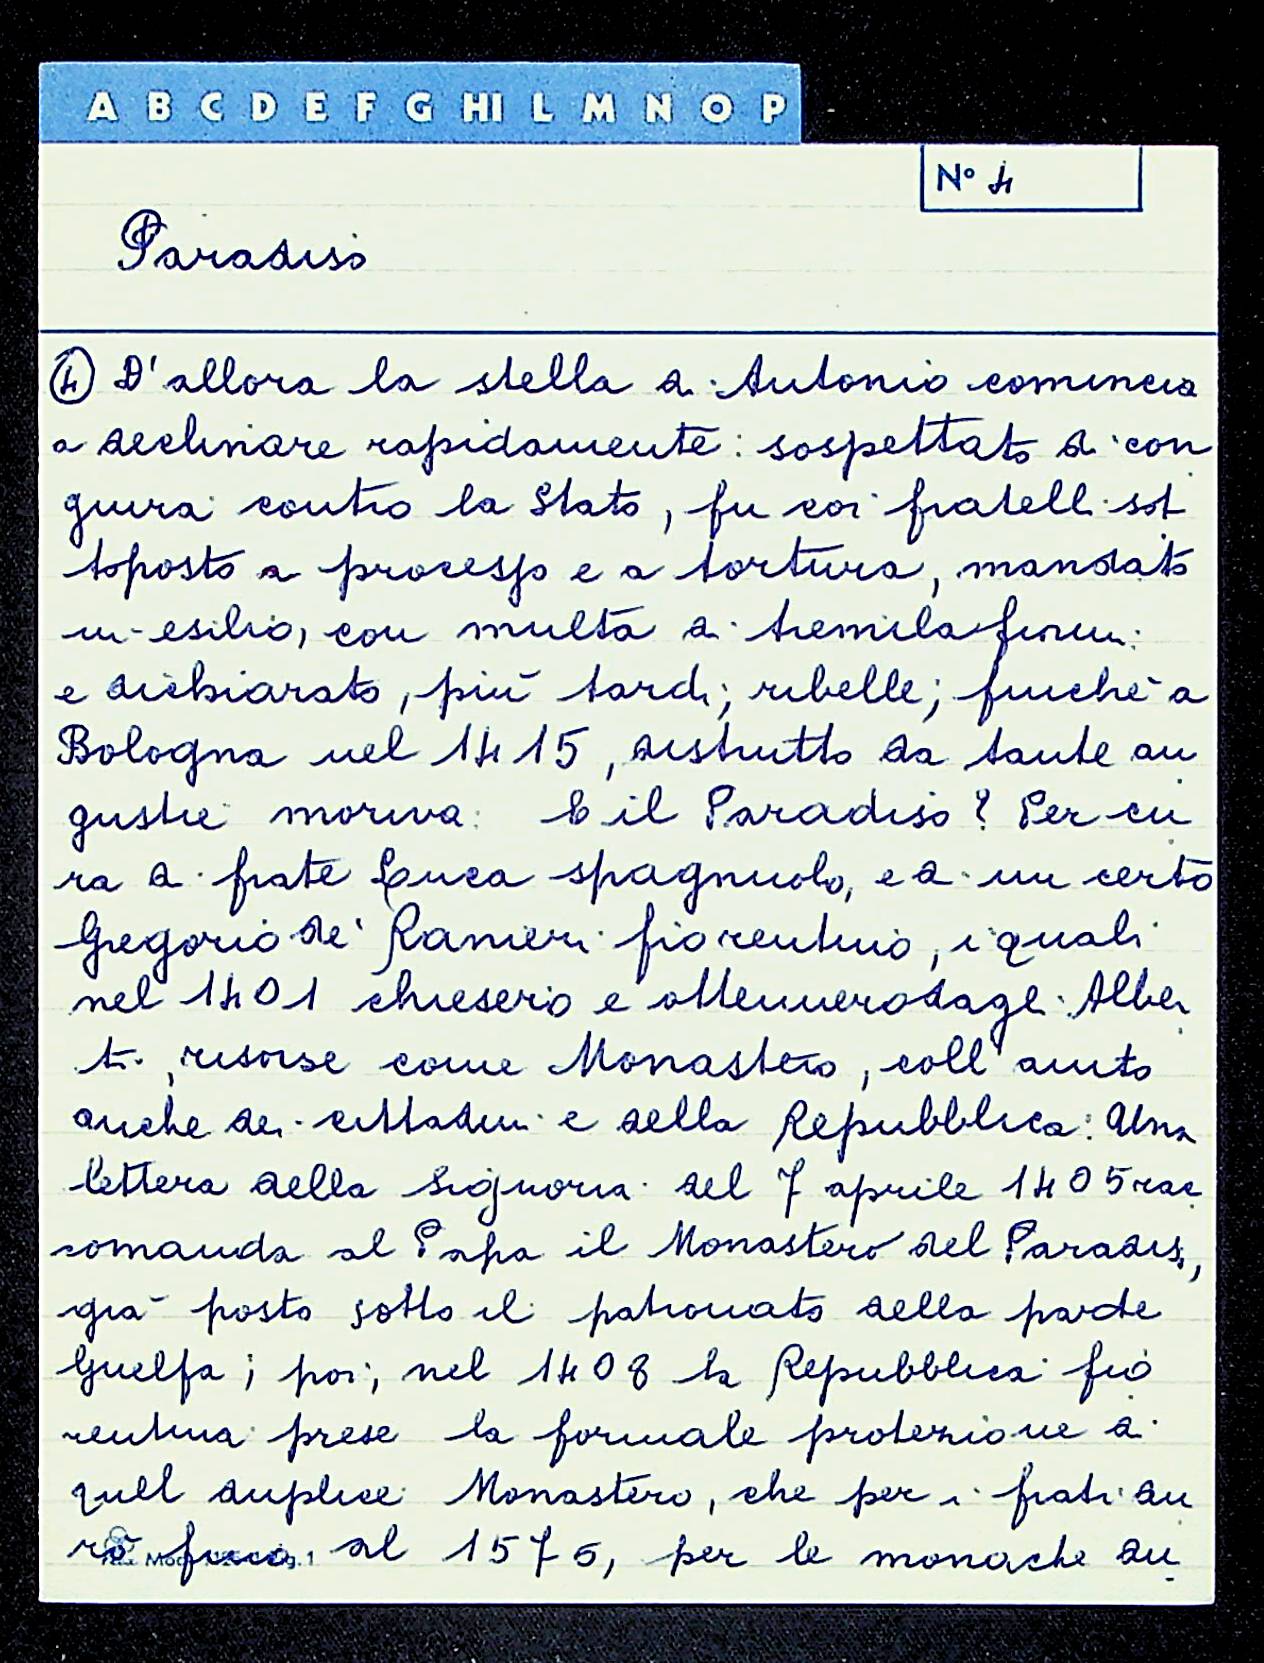 A B C D E F G HI L M N O P
N° 4
Paradiso
④ D'allora la stella di Antonio comincia
a declinare rapidamente: sospettato di con
giura contro lo Stato, fu coi fratelli sot
toposto a processo e a tortura, mandato
in esilio, con multa di tremila fiorini
e dichiarato, più tardi, ribelle; finchè a
Bologna nel 1415, distrutto da tante an
gustie moriva. E il Paradiso? Per cu
ra di frate Luca spagnuolo, e di un certo
Gregorio de' Ranieri fiorentino, i quali
nel 1401 chiesero e ottennero dagli Alber
ti, risorse come Monastero, coll'aiuto
anche dei cittadini e della Repubblica. Una
lettera della Signoria del 7 aprile 1405 rac
comanda al Papa il Monastero del Paradiso,
già posto sotto il patronato della parte
Guelfa; poi, nel 1408 la Repubblica fio
rentina prese la formale protezione di
quel duplice Monastero, che per i frati du
rò fino al 1575, per le monache du